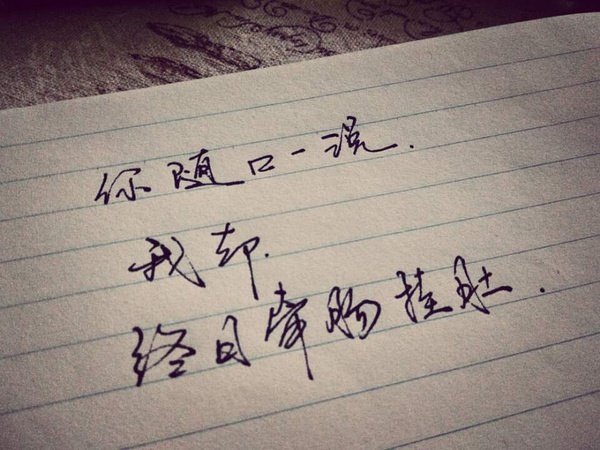 你随口一说.
我却.
终日牵肠挂肚.